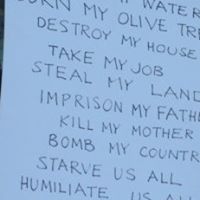 MY WATER
BURN MY OLIVE TRE
DESTROY MY HOUSE
TAKE MY JOB
STEAL MY LAND
IMPRISON MY FATH
KILL MY MOTHER
BOMB MY COUNTR
STARVE US ALL
HUMILIATE US ALL